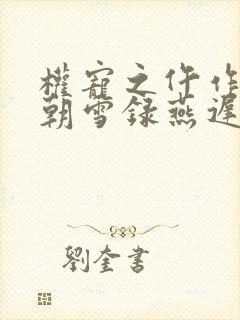 權寵之仵作
朝雪録燕遲
劉奎書